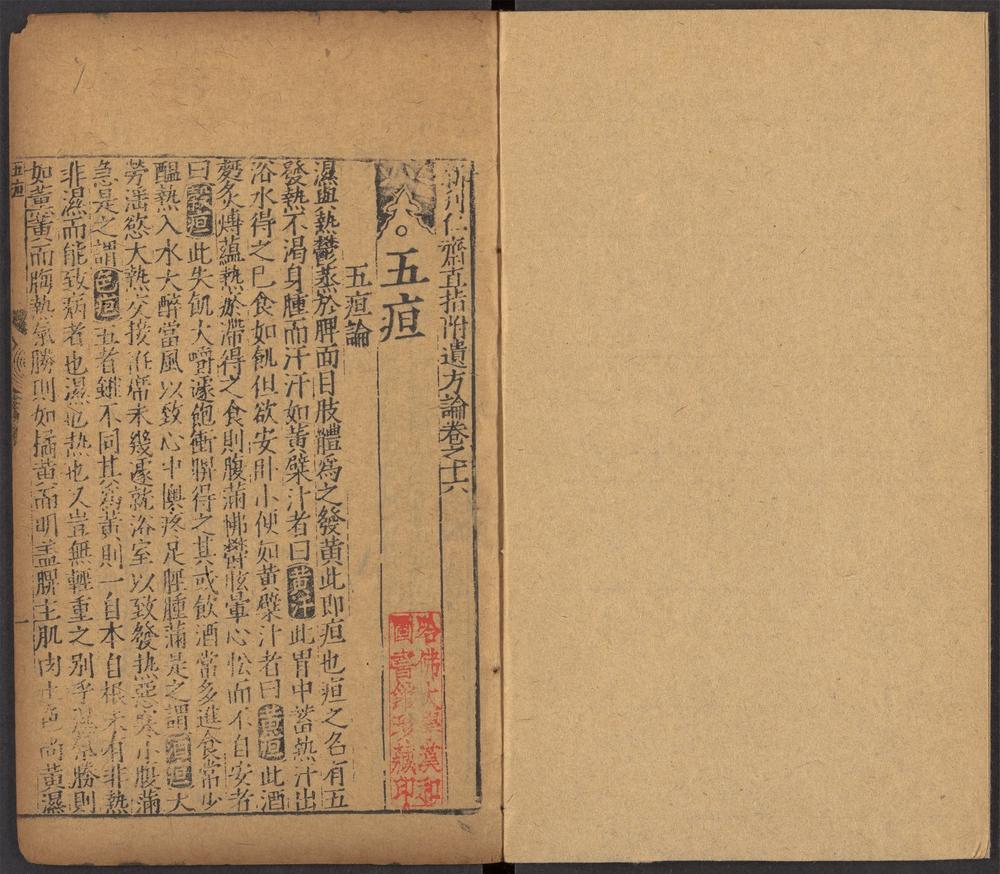 新刊仁齋直指附遺方論卷之十六
五疸
五疸論
濕與熱鬱蒸於脾面目肢體爲之發黄此即疸也疸之名有五
發熱不渴身腫而汗汗如黄蘗汁者曰黄汗此胃中蓄熱汗出
浴水得之已食如飢但欲安卧小便如黄蘗汁者曰黄疸此酒
麫炙煿蘊熱瘀滯得之食則腹滿怫鬱眩暈心忪而不自安者
曰穀疸此失飢大嚼遽飽衝脾得之其或飲酒常多進食常少
醖熱入水大醉當風以致心中懊疼足脛腫滿是之謂酒疸大
勞滛慾大熱交接袵席未幾遽就浴室以致發热惡寒小腹滿
急是之謂色疸五者雖不同其爲黄則一自本自根未有非熱
非濕而能致病者也濕也热也又豈無輕重之别乎濕氣勝則
如薰黄而晦熱氣勝則如橘黄而明盖脾主肌肉
尚黄濕
五疸
一
哈佛大學漢和
圖書館珍藏印